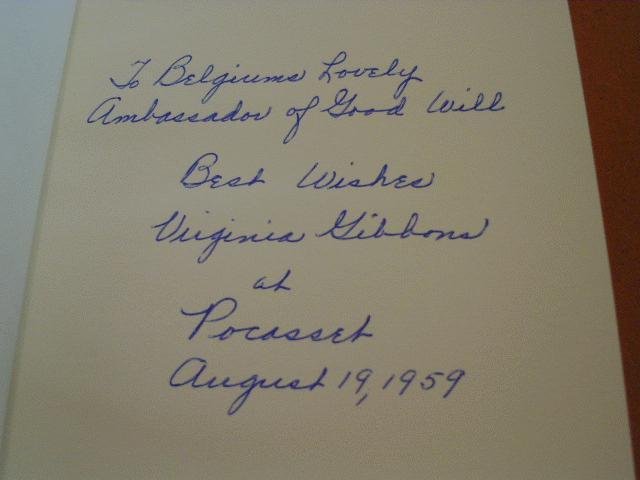 To Belgiums Lovely
Ambassador of Good Will
Best Wishes
Virginia Gibbons
at
Pocasset
August 19, 1959